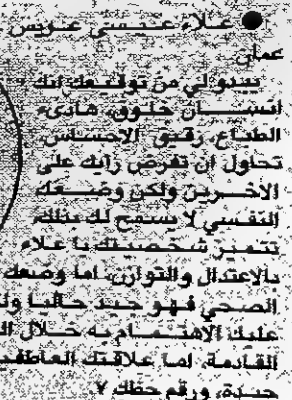 علاء عيسى عويس
عمان
يبدو لي من توقيعك انك
انسان خلوق، هادىء
الطباع، رقيق الاحساس،
تحاول ان تفرض رايك على
الاخرين ولكن وضعك
النفسي لا يسمح لك بذلك،
تتميز شخصيتك يا علاء
بالاعتدال والتوازن، اما وضعك
الصحي فهو جيد حاليا ولك
عليك الاهتمام به خلال ال
القادمة، اما علاقتك العاطفي
جيدة، ورقم حظك ٧